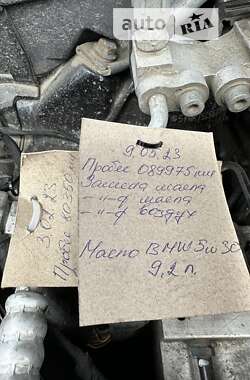 auto RIA
9.05.23
Пробег 089975 км
Замена масла
-"-ф масла
-"-ф воздух
Масло BMW 5w30
9,2 л.
3.02.23
Пробег